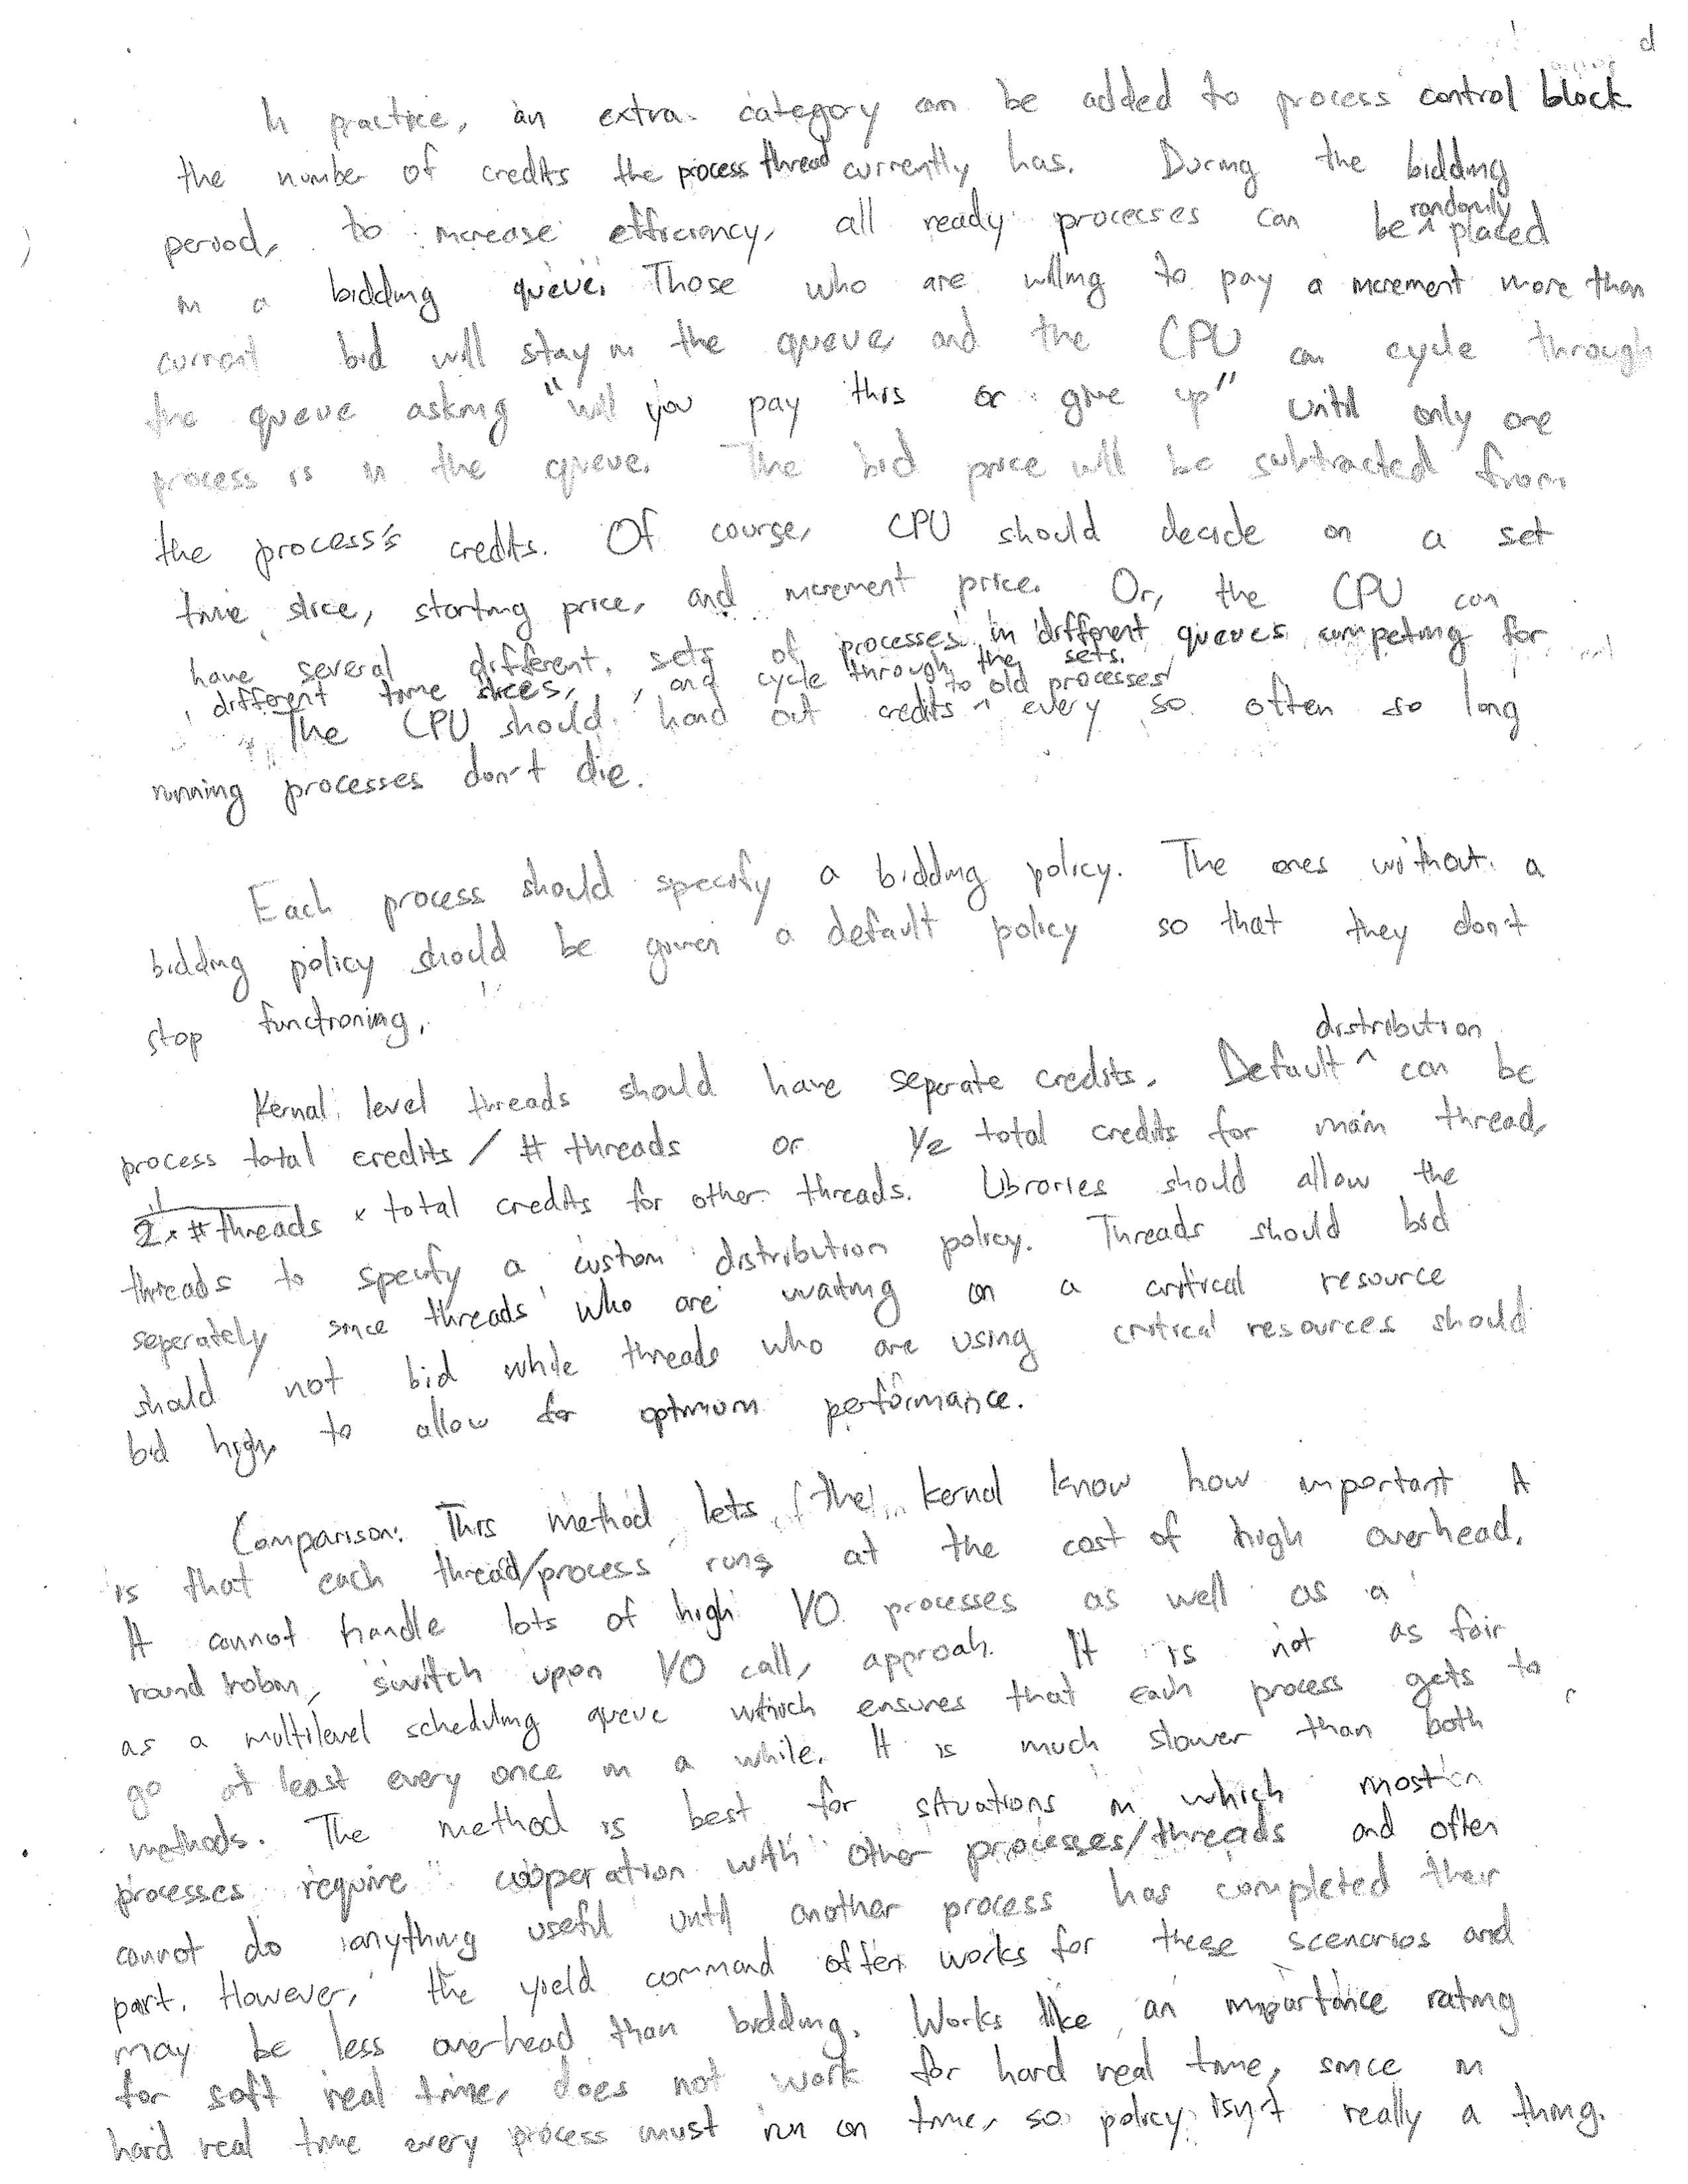 d
In practice, an extra category can be added to process control block
the number of credits the process thread currently has. During the bidding
period, to increase efficiency, all ready processes can be ^ randomly placed
in a bidding queue. Those who are willing to pay a increment more than
current bid will stay in the queue, and the CPU can cycle through
the queue asking "will you pay this or give up" until only one
process is in the queue. The bid price will be subtracted from
the process's credits. Of course, CPU should decide on a set
time slice, starting price, and increment price. Or, the CPU can
have several different sets of processes in different queues competing for
different time slices, and cycle through the sets.
The CPU should hand out credits ^ to old processes every so often so long
running processes don't die.
Each process should specify a bidding policy. The ones without a
bidding policy should be given a default policy so that they don't
stop functioning.
Kernal level threads should have seperate credits. Default ^ distribution can be
process total credits / # threads or 1/2 total credits for main thread,
1/(2 x # threads) x total credits for other threads. Libraries should allow the
threads to specify a custom distribution policy. Threads should bid
seperately since threads who are waiting on a critical resource
should not bid while threads who are using critical resources should
bid high, to allow for optimum performance.
Comparison: This method lets the kernal know how important it
is that each thread/process runs at the cost of high overhead.
It cannot handle lots of high I/O processes as well as a
round robin, switch upon I/O call, approah. It is not as fair
as a multilevel scheduling queue which ensures that each process gets to
go at least every once in a while. It is much slower than both
methods. The method is best for situations in which most
processes require cooperation with other processes/threads and often
cannot do anything useful until another process has completed their
part. However, the yield command often works for these scenarios and
may be less overhead than bidding. Works like an importance rating
for soft real time, does not work for hard real time, since in
hard real time every process must run on time, so policy isn't really a thing.